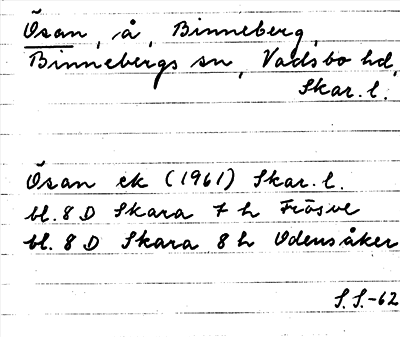 Ösan, å, Binneberg,
Binnebergs sn, Vadsbo hd,
Skar. l.
Ösan ek (1961) Skar. l.
bl. 8 D Skara 7 h Frösve
bl. 8 D Skara 8 h Odensåker
S.S.-62